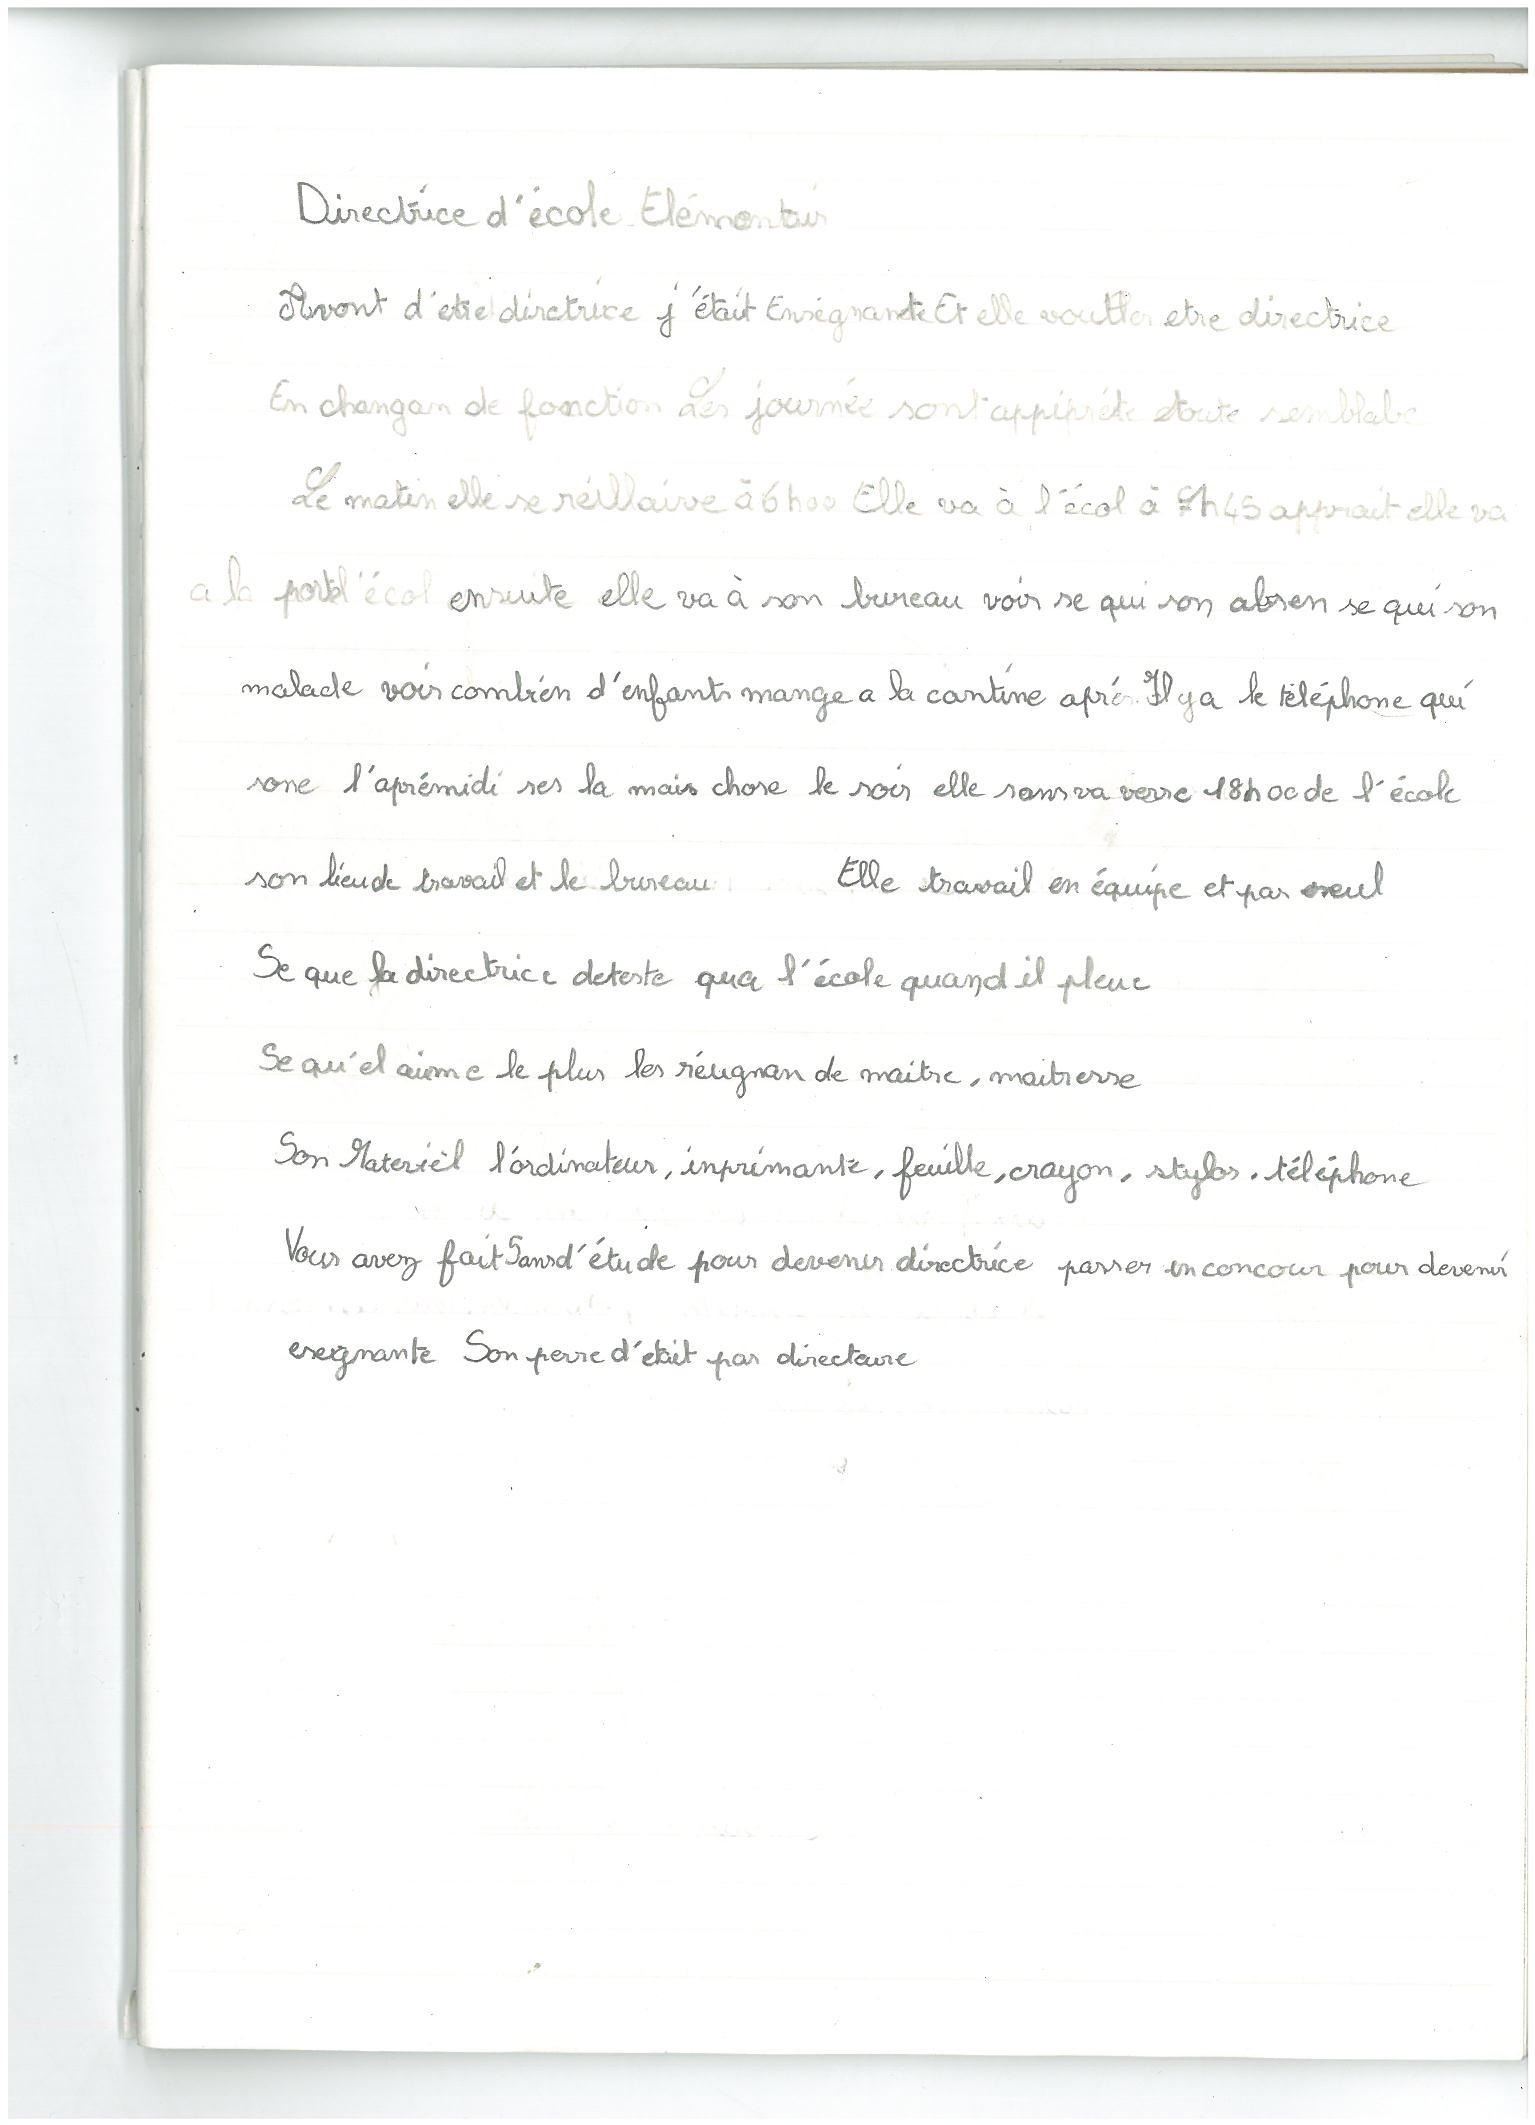 Directrice d'école Elémentair
Avont d'etre dirctrice j'était Enségnante Et elle etre directrice
En changan de fonction Les journée sont semblabe
Le matin elle se réillaive à 6h00 Elle va à l'écol à h45 apprait elle va
a la porte l'écol ensuite elle va à son bureau voir se qui son absen se qui son
malade voir combien d'enfants mange a la cantine aprés Il y a le téléphone qui
sone l'aprémidi ses la mais chose le soir elle sans va verre 18h00 de l'école
son lieu de travail et le bureau Elle travail en équipe et pas seul
Se que la directrice deteste l'école quand il pleue
Se qu'el aime le plus les réugnan de maitre, maitresse
Son Materiel l'ordinateur, inprimante, feuille, crayon, stylos, téléphone
Vous avez fait 5 ans d'étude pour devenir directrice passer un concour pour devenir
eseignante Son perre d'était pas directeure